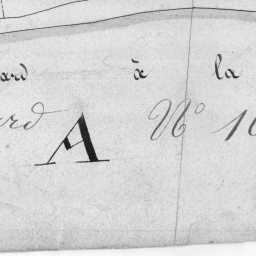 ard à la
ard A N° 10